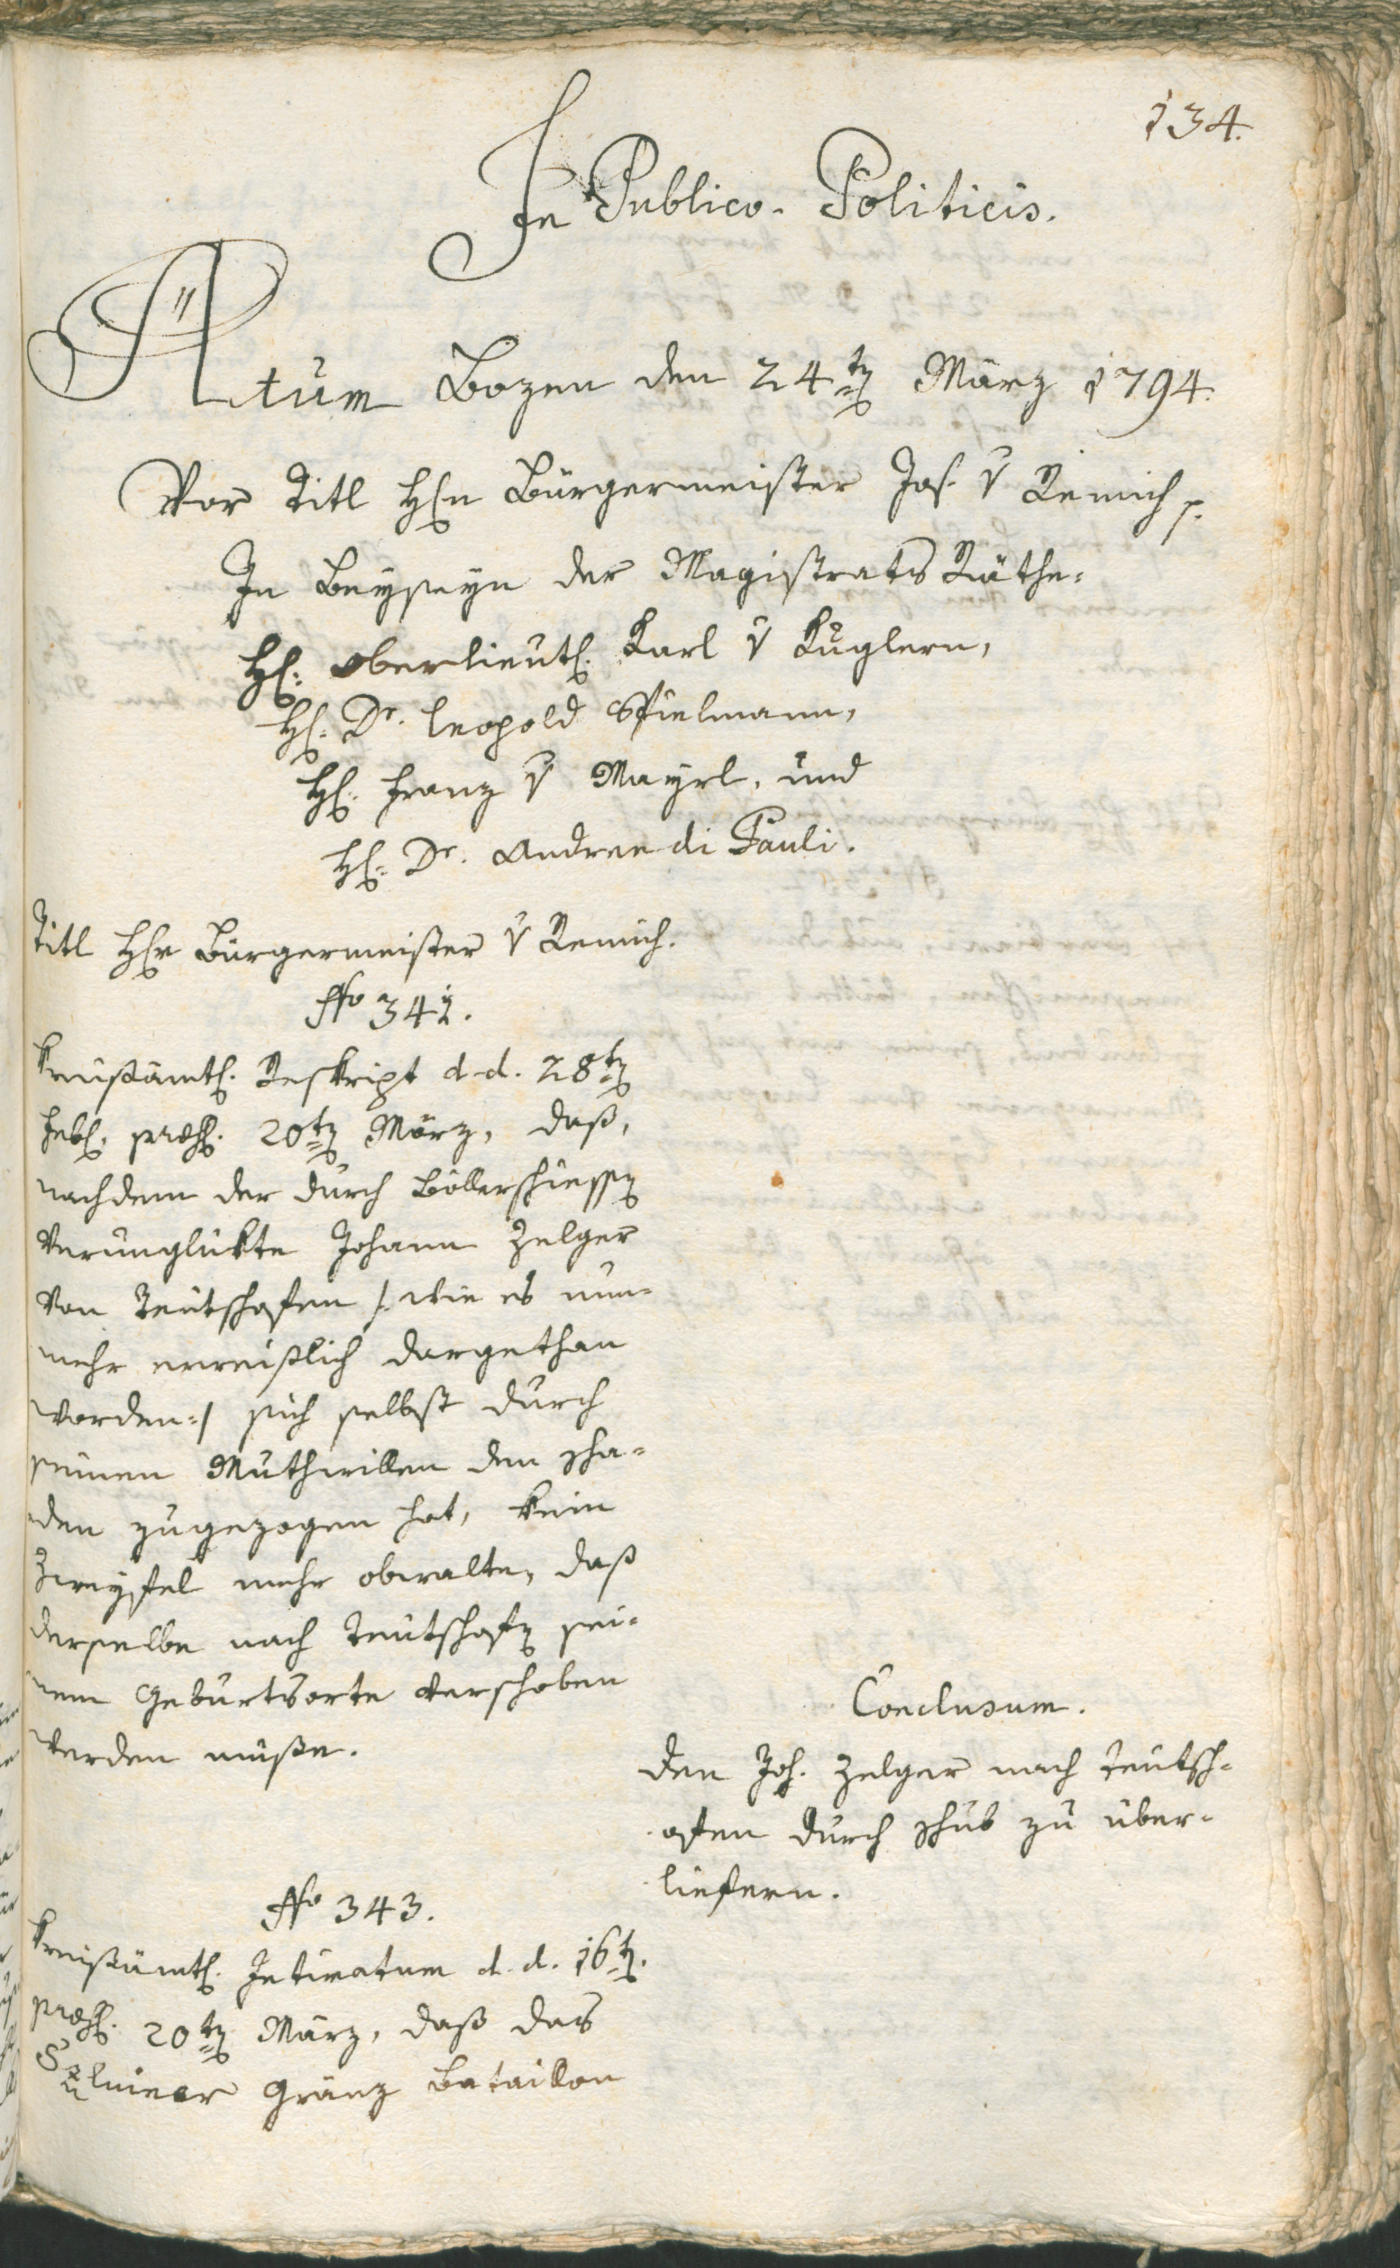 134.
In Publico-Politicis.
Actum Bozen den 24t März 1794.
Vor Titl H. Bürgermeister Jos. v Remich p.
In Beyseyn der Magistrats Räthe:
H: Oberlieut. Karl v Kuglern,
H: Dr. Leopold Spielmann,
H: Franz v Mayrl, und
H: Dr. Andree di Pauli.
Titl H Bürgermeister v Remich.
No 342.
Kreisämtl. Reskript d. d. 28t
Feb. præs. 20t März, daß,
nachdem der durch Böllerschiessen
verunglükte Johann Zelger
von Teutschofen /: wie es nun-
mehr erweißlich dargethan
worden :/ sich selbst durch
seinen Muthwillen den Scha-
den zugezogen hat, kein
Zweyfel mehr obwalte, daß
derselbe nach Teutschofen sei-
nem Geburtsorte verschoben
werden müße.
Conclusum.
Den Joh. Zelger nach Teutsch-
ofen durch Schub zu über-
liefern.
No 343.
Kreisämtl. Intimatum d. d. 16t.
præs. 20t März, daß das
Szluiner Gränz Bataillon